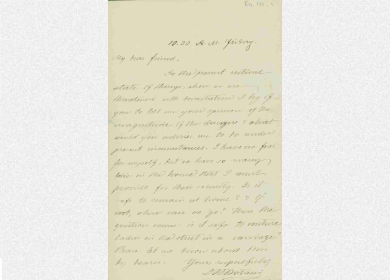 10.30 A.M. Friday
My dear friend,
In the present critical
state of things, when we are
threatened with devastation I beg of
you to tell me your opinion of the
magnitude of the danger & what
would you advise me to do under
present circumstances. I have no fear
for myself, but we have so many
here in the house that I must
provide for their security. Is it
safe to remain at home? & if
not, where can we go? Then the
question comes is it safe to venture
out in the street in a carriage?
Please let us know about
Yours respectfully